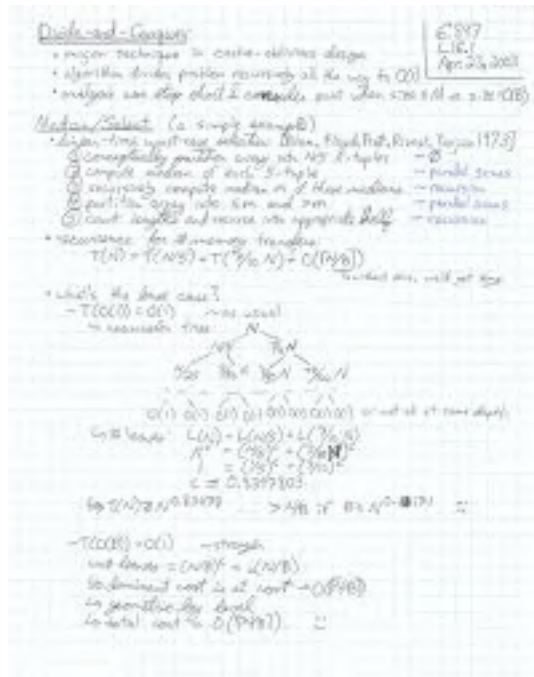 Divide-and-Conquer:
6.897
L16.1
Apr. 23, 2003
• major technique in cache-oblivious design
• algorithm divides problem recursively all the way to O(1)
• analysis can stop short & consider part when size ≤ M or size O(B)
Median/Select (a simple example)
• linear-time worst-case selection [Blum, Floyd, Pratt, Rivest, Tarjan 1973]
① conceptually partition array into N/5 5-tuples — ∅
② compute median of each 5-tuple — parallel scans
③ recursively compute median m of these medians — recursion
④ partition array into ≤m and >m — parallel scans
⑤ count lengths and recurse into appropriate half — recursion
• recurrence for # memory transfers:
T(N) = T(N/5) + T(7/10 N) + O(⌈N/B⌉)
• what's the base case?
— T(O(1)) = O(1) — as usual
↳ recursion tree:
N
N/5 7/10 N
O(1) O(1) O(1) O(1) O(1) O(1) O(1) O(1) not all at same depth
↳ # leaves: L(N) = L(N/5) + L(7/10 N)
N^c = (N/5)^c + (7/10 N)^c
1 = (1/5)^c + (7/10)^c
c ≈ 0.8397803
↳ T(N) ≥ N^0.83978 > N/B if
— T(O(B)) = O(1) — stronger
↳ # leaves = (N/B)^c = L(N/B)
so dominant cost is at root → O(⌈N/B⌉)
↳ geometric by level
↳ total cost is O(⌈N/B⌉)